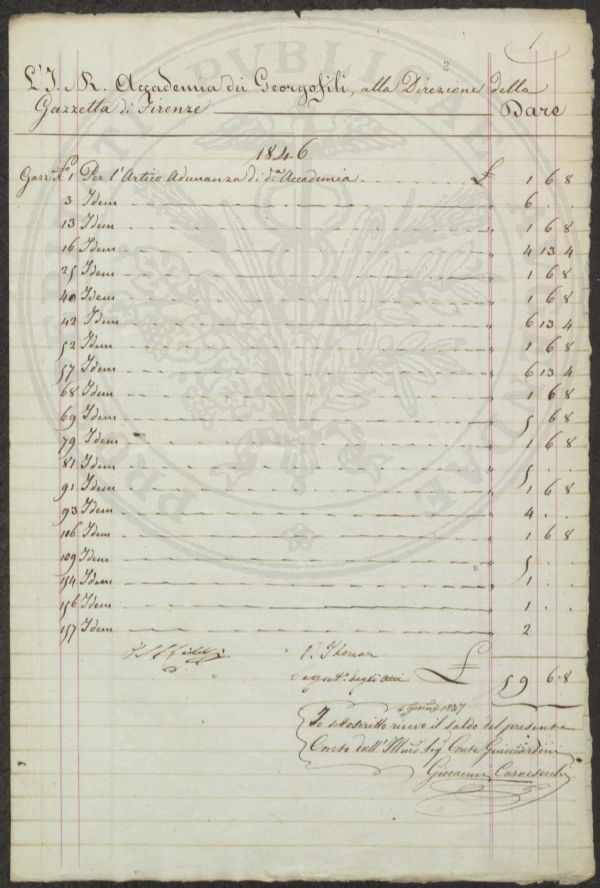 1
2
L'I. R. Accademia dei Georgofili, alla Direzione della
Gazzetta di Firenze Dare
1846
Gazz.ª N.º 1 Per l'Artico Adunanza di d.ª Accademia £ 1 6 8
3 Idem " 6 . .
13 Idem " 1 6 8
16 Idem " 4 13 4
25 Idem " 1 6 8
40 Idem " 1 6 8
42 Idem " 6 13 4
52 Idem " 1 6 8
57 Idem " 6 13 4
68 Idem " 1 6 8
69 Idem " 5 6 8
79 Idem " 1 6 8
81 Idem " 5 . .
91 Idem " 1 6 8
93 Idem " 4 . .
106 Idem " 1 6 8
109 Idem " 5 . .
154 Idem " 1 . .
156 Idem " 1 . .
157 Idem " 2
P. Thouar
degli Atti £ 59 6 8
4 Genn.º 1847
Io sottoscritto ricevo il saldo del presente
Conto dall'Illmo Sig. Conte Guicciardini
Giovanni Carnesecchi
PROSPERITATI PUBLICAE AUGENDAE